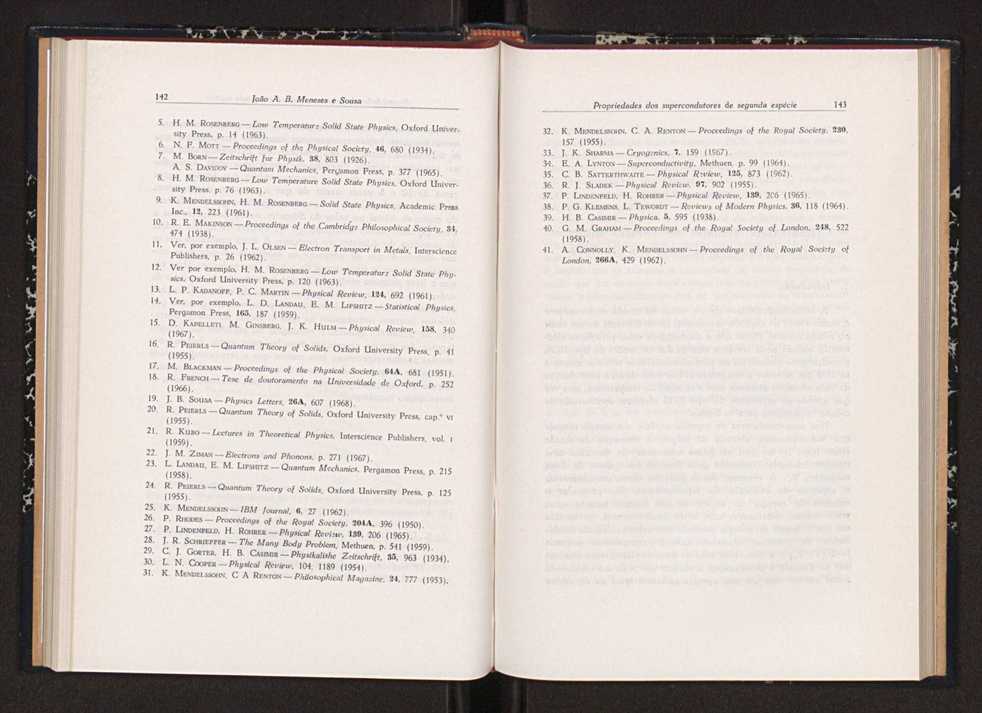 142
João A. B. Meneses e Sousa
5. H. M. Rosenberg — Low Temperature Solid State Physics, Oxford Univer-
sity Press, p. 14 (1963).
6. N. F. Mott — Proceedings of the Physical Society, 46, 680 (1934).
7. M. Born — Zeitschrift fur Physik, 38, 803 (1926).
A. S. Davidov — Quantum Mechanics, Pergamon Press, p. 377 (1965).
8. H. M. Rosenberg — Low Temperature Solid State Physics, Oxford Univer-
sity Press, p. 76 (1963).
9. K. Mendelssohn, H. M. Rosenberg — Solid State Physics, Academic Press
Inc., 12, 223 (1961).
10. R. E. Makinson — Proceedings of the Cambridge Philosophical Society, 34,
474 (1938).
11. Ver, por exemplo, J. L. Olsen — Electron Transport in Metals, Interscience
Publishers, p. 26 (1962).
12. Ver por exemplo, H. M. Rosenberg — Low Temperature Solid State Phy-
sics, Oxford University Press, p. 120 (1963).
13. L. P. Kadanoff, P. C. Martin — Physical Review, 124, 692 (1961).
14. Ver, por exemplo, L. D. Landau, E. M. Lipshitz — Statistical Physics,
Pergamon Press, 165, 187 (1959).
15. D. Kapelleti, M. Ginsberg, J. K. Hulm — Physical Review, 158, 340
(1967).
16. R. Peierls — Quantum Theory of Solids, Oxford University Press, p. 41
(1955).
17. M. Blackman — Proceedings of the Physical Society, 64A, 681 (1951).
18. R. French — Tese de doutoramento na Universidade de Oxford, p. 252
(1966).
19. J. B. Sousa — Physics Letters, 26A, 607 (1968).
20. R. Peierls — Quantum Theory of Solids, Oxford University Press, cap.º vi
(1955).
21. R. Kubo — Lectures in Theoretical Physics, Interscience Publishers, vol. i
(1959).
22. J. M. Ziman — Electrons and Phonons, p. 271 (1967).
23. L. Landau, E. M. Lipshitz — Quantum Mechanics, Pergamon Press, p. 215
(1958).
24. R. Peierls — Quantum Theory of Solids, Oxford University Press, p. 125
(1955).
25. K. Mendelssohn — IBM Journal, 6, 27 (1962).
26. P. Rhodes — Proceedings of the Royal Society, 204A, 396 (1950).
27. P. Lindenfeld, H. Rohrer — Physical Review, 139, 206 (1965).
28. J. R. Schrieffer — The Many Body Problem, Methuen, p. 541 (1959).
29. C. J. Gorter, H. B. Casimir — Physikalishe Zeitschrift, 35, 963 (1934).
30. L. N. Cooper — Physical Review, 104, 1189 (1954).
31. K. Mendelssohn, C A Renton — Philosophical Magazine, 24, 777 (1953).
Propriedades dos supercondutores de segunda espécie
143
32. K. Mendelssohn, C. A. Renton — Proceedings of the Royal Society, 230,
157 (1955).
33. J. K. Sharma — Cryogenics, 7, 159 (1967).
34. E. A. Lynton — Superconductivity, Methuen, p. 99 (1964).
35. C. B. Satterthwaite — Physical Review, 125, 873 (1962).
36. R. J. Sladek — Physical Review, 97, 902 (1955).
37. P. Lindenfeld, H. Rohrer — Physical Review, 139, 206 (1965).
38. P. G. Klemens, L. Tewordt — Reviews of Modern Physics, 36, 118 (1964).
39. H. B. Casimir — Physica, 5, 595 (1938).
40. G. M. Graham — Proceedings of the Royal Society of London, 248, 522
(1958).
41. A. Connolly, K. Mendelssohn — Proceedings of the Royal Society of
London, 266A, 429 (1962).